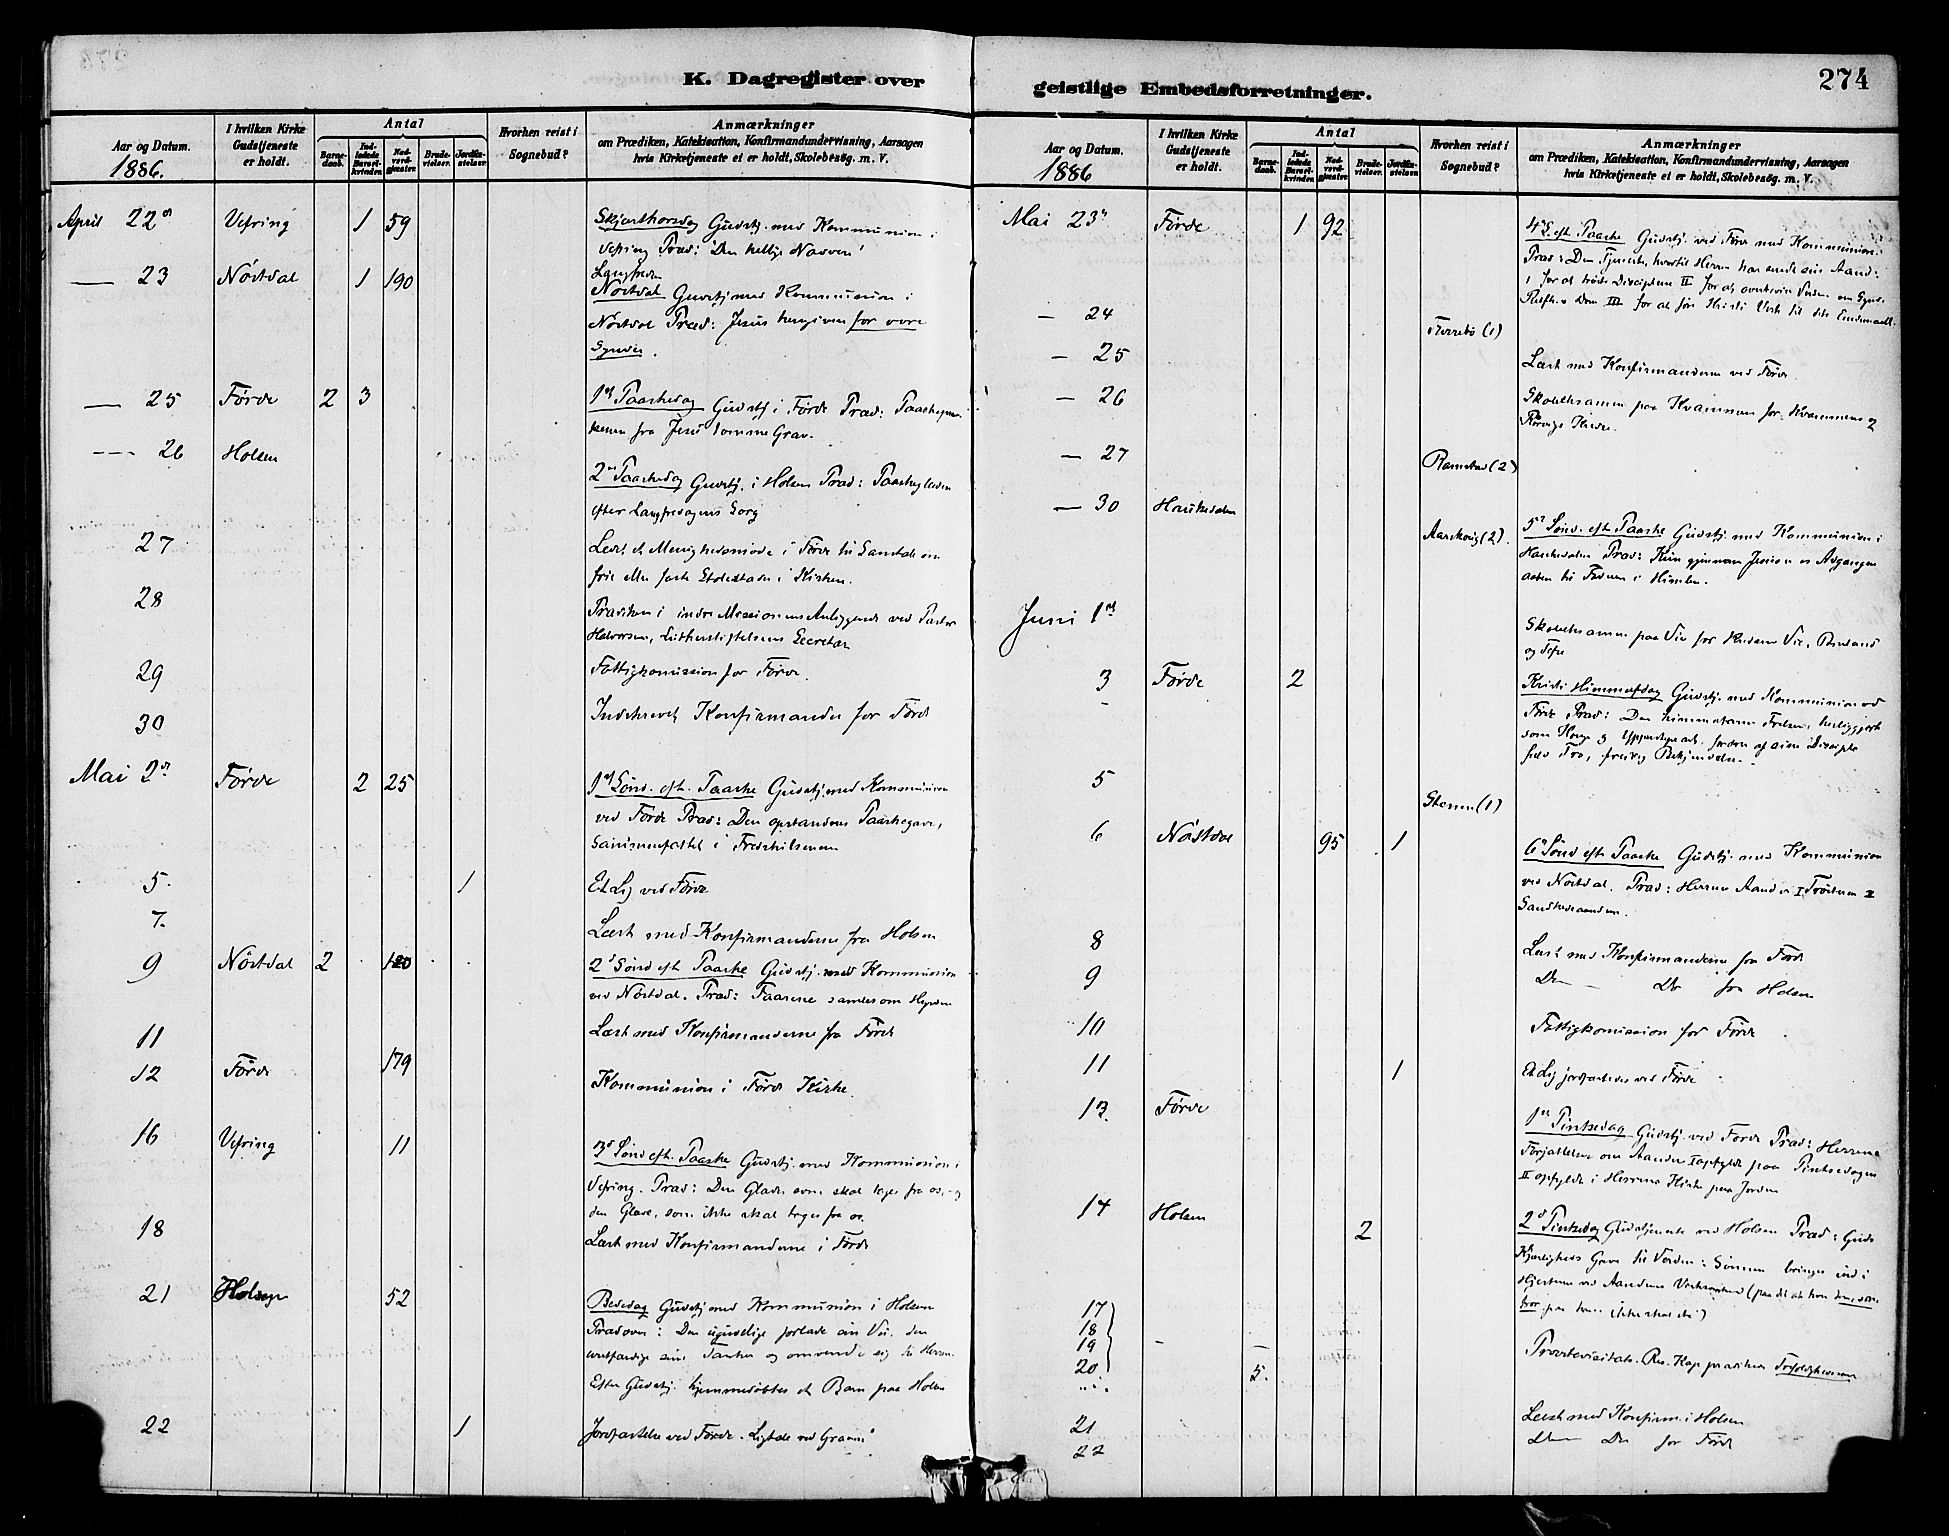 K. Dagregister over
Aar og Datum.
1886.
I hvilken Kirke
Gudstjeneste
er holdt.
Antal
Barne-
daab.
Ind-
ledede
Barsel-
kvinder.
Nad-
verd-
gjæster.
Brude-
vielser.
Jordfæ-
stelser.
Hvorhen reist i
Sognebud?
Anmærkninger
om Prædiken, Katekisation, Konfirmandundervisning, Aarsagen
hvis Kirketjeneste ei er holdt, Skolebesøg. m. V.
April 22 Vefring 1 59 Skjærthorsdag Gudstj. med Kommunion i
Vefring Præd: Den hellige Nadver
— 23 Nöstdal 1 190 Langfredag
Nöstdal Gudstj med Kommunion i
Nöstdal Præd: Jesus hengiven for vore
Synder.
— 25 Förde 2 3 1ste Paaskedag Gudstj i Förde Præd: Paaske
fra Jesu tomme Grav.
— 26 Holsen
2den Paaskedag Gudstj. i Holsen Præd: Paaskeglæden
efter Langfredagens Sorg
27 Ledet et Menighedsmöde i Förde til Samtale om
frie eller faste i Kirken.
28 Prædiken i indre Missionens Anliggende ved Pastor
Halvorsen, Lutherstiftelsens Secretær
29 Fattigkomission for Förde.
30 Indskrevet Konfirmander for Förde
Mai 2den Förde 2 25 1ste Sönd. eft. Paaske Gudstj. med Kommunion
ved Förde Præd: Den opstandnes Paaskegave,
Sammenfattet i Fredshilsenen
5. 1 Et Lig ved Förde
7. Læst med Konfirmanderne fra Holsen
9 Nöstdal 2 180 2d Sönd eft Paaske Gudstj. med Kommunion
ved Nöstdal. Præd: Faarene samles om Hyrden
11 Læst med Konfirmanderne fra Förde
12 Förde 179
Kommunion i Förde Kirke.
16 Vefring 11 3d Sönd eft. Paaske Gudstj. med Kommunion i
Vefring. Præd: Den Glæde, som skal tages fra os, og
den Glæde, som ikke skal tages fra os.
18 Læst med Konfirmanderne i Förde
21 Holsen 52 Bededag Gudstj med Kommunion i Holsen
Præd over: Den ugudelige forlade sin Vei, den
uretfærdige sine Tanker og omvende sig til Herren.
Efter Gudstj. hjemmedöbtes et Barn paa Holsen
22 1 Jordfæstelse ved Förde. Ligtale ved Graven
geistlige Embedsforretninger.
274
Aar og Datum.
1886
I hvilken Kirke
Gudstjeneste
er holdt.
Antal
Barne-
daab.
Ind-
ledede
Barsel-
kvinder.
Nad-
verd-
gjæster.
Brude-
vielser.
Jordfæ-
stelser.
Hvorhen reist i
Sognebud?
Anmærkninger
om Prædiken, Katekisation, Konfirmandundervisning, Aarsagen
hvis Kirketjeneste ei er holdt, Skolebesøg. m. V.
Mai 23 Förde 1 92 4 S. eft Paaske Gudstj. ved Förde med Kommunion.
Præd: Den Tjeneste, hvortil Herren har sendt sin Aand:
I for at tröste Disciplene II for at overbevise Verden om Synd
Retf. & Dom III for at före Kristi Verk til dets Endemaal.
— 24 (1)
— 25 Læst med Konfirmanderne ved Förde
— 26 Skoleeksamen paa Kvammen for Kvammens &
Kredse.
— 27 Ramstad (2)
— 30 Haukedalen
Aarskoug (2). 5te Sönd. eft Paaske Gudstj med Kommunion i
Haukedalen Præd: Kun gjennem Jesus er Adgangen
aaben til Faderen i Himlen.
Juni 1ste Skoleeksamen paa Vie for Kredsene Vie,
og
3 Förde 2 Kristi Himmelfdag Gudstj. med Kommunion ved
Förde Præd: Den himmelfarne Frelser, herliggjort
som Konge og Ypperstepræst, fordrer af sine Disciple
Tro, freidig Bekjendelse.
5 (1)
6 Nöstdal 95 1 6te Sönd eft Paaske Gudstj. med Kommunion
ved Nöstdal. Præd: Herrens Aand er I Trösteren II
Sandhedsaanden.
8 Læst med Konfirmanderne fra Förde
9 Do — Do fra Holsen
10 Fattigkomission for Förde
11 1 Et Lig jordfæstedes ved Förde
13. Förde 1ste Pintsedag Gudstj. ved Förde Præd: Herrens
Forjættelser om Aanden I opfyldt paa Pintsedagen
II opfyldt i Herrens Kirke paa Jorden
14 Holsen 2 2d Pintsedag Gudstjeneste ved Holsen Præd: Guds
Kjærligheds Gave til Verden: Sönnen bringes ind i
Hjerterne ved Aandens Virksomhed (paa det at hver den, som
tror paa ham ikke skal dö)
17
18
19
20 5. Provstevisitats. Res. Kap prædiken
21 Læst med Konfirm. i Holsen
22 do — Do for Förde